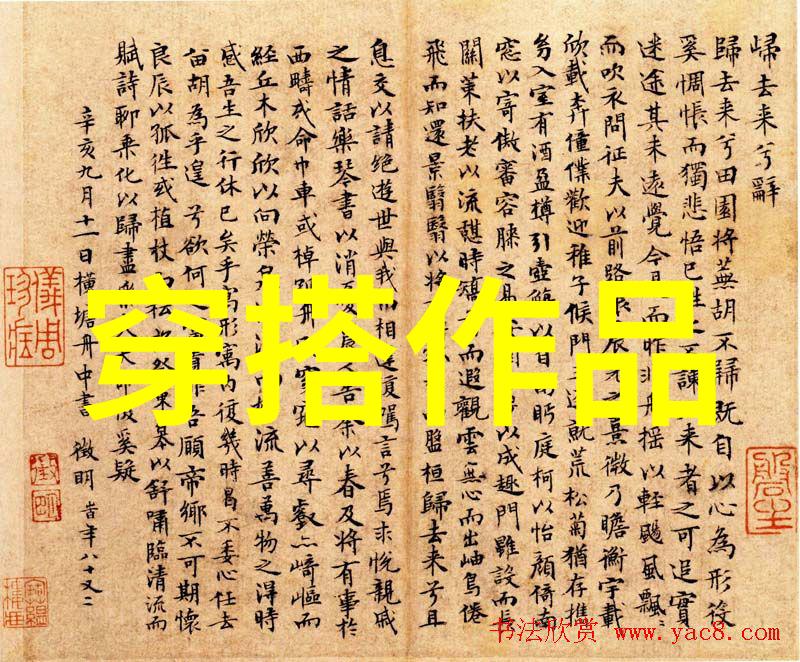 歸去来兮辭
歸去来兮田園將蕪胡不歸既自以心為形役
奚惆悵而獨悲悟已往之諫来者之可追實
迷途其未遠覺今而昨非舟揺以輕颺風飄〻
而吹衣問征夫以前路晨之熹微乃瞻衡宇載
欣載奔僮僕歡迎稚子候門逕就荒松菊猶存携
幼入室有酒盈樽引壺觴以自眄庭柯以怡顔倚南
窓以寄傲審容膝之易以成趣門雖設而長
關策扶老以流憩時矯而遐觀雲無心而出岫鳥倦
飛而知還景翳翳以將而盤桓歸去来兮且
息交以請絶遊世與我而相違復駕言兮焉求悅親戚
之情話樂琴書以消人告余以春及將有事於
西疇或命巾車或棹舟窈以尋壑亦崎嶇而
經丘木欣欣以向榮流善萬物之得時
感吾生之行休已矣乎寓形寓内復幾時曷不委心任去
留胡為乎遑兮欲何吾願帝鄉不可期懷
良辰以孤往或植杖而皋以舒嘯臨清流而
賦詩聊乘化以歸盡天命復奚疑
辛亥九月十一日橫塘舟中書 徵明 時年八十又二
穿搭作品
书法欣赏 www.yac8.com